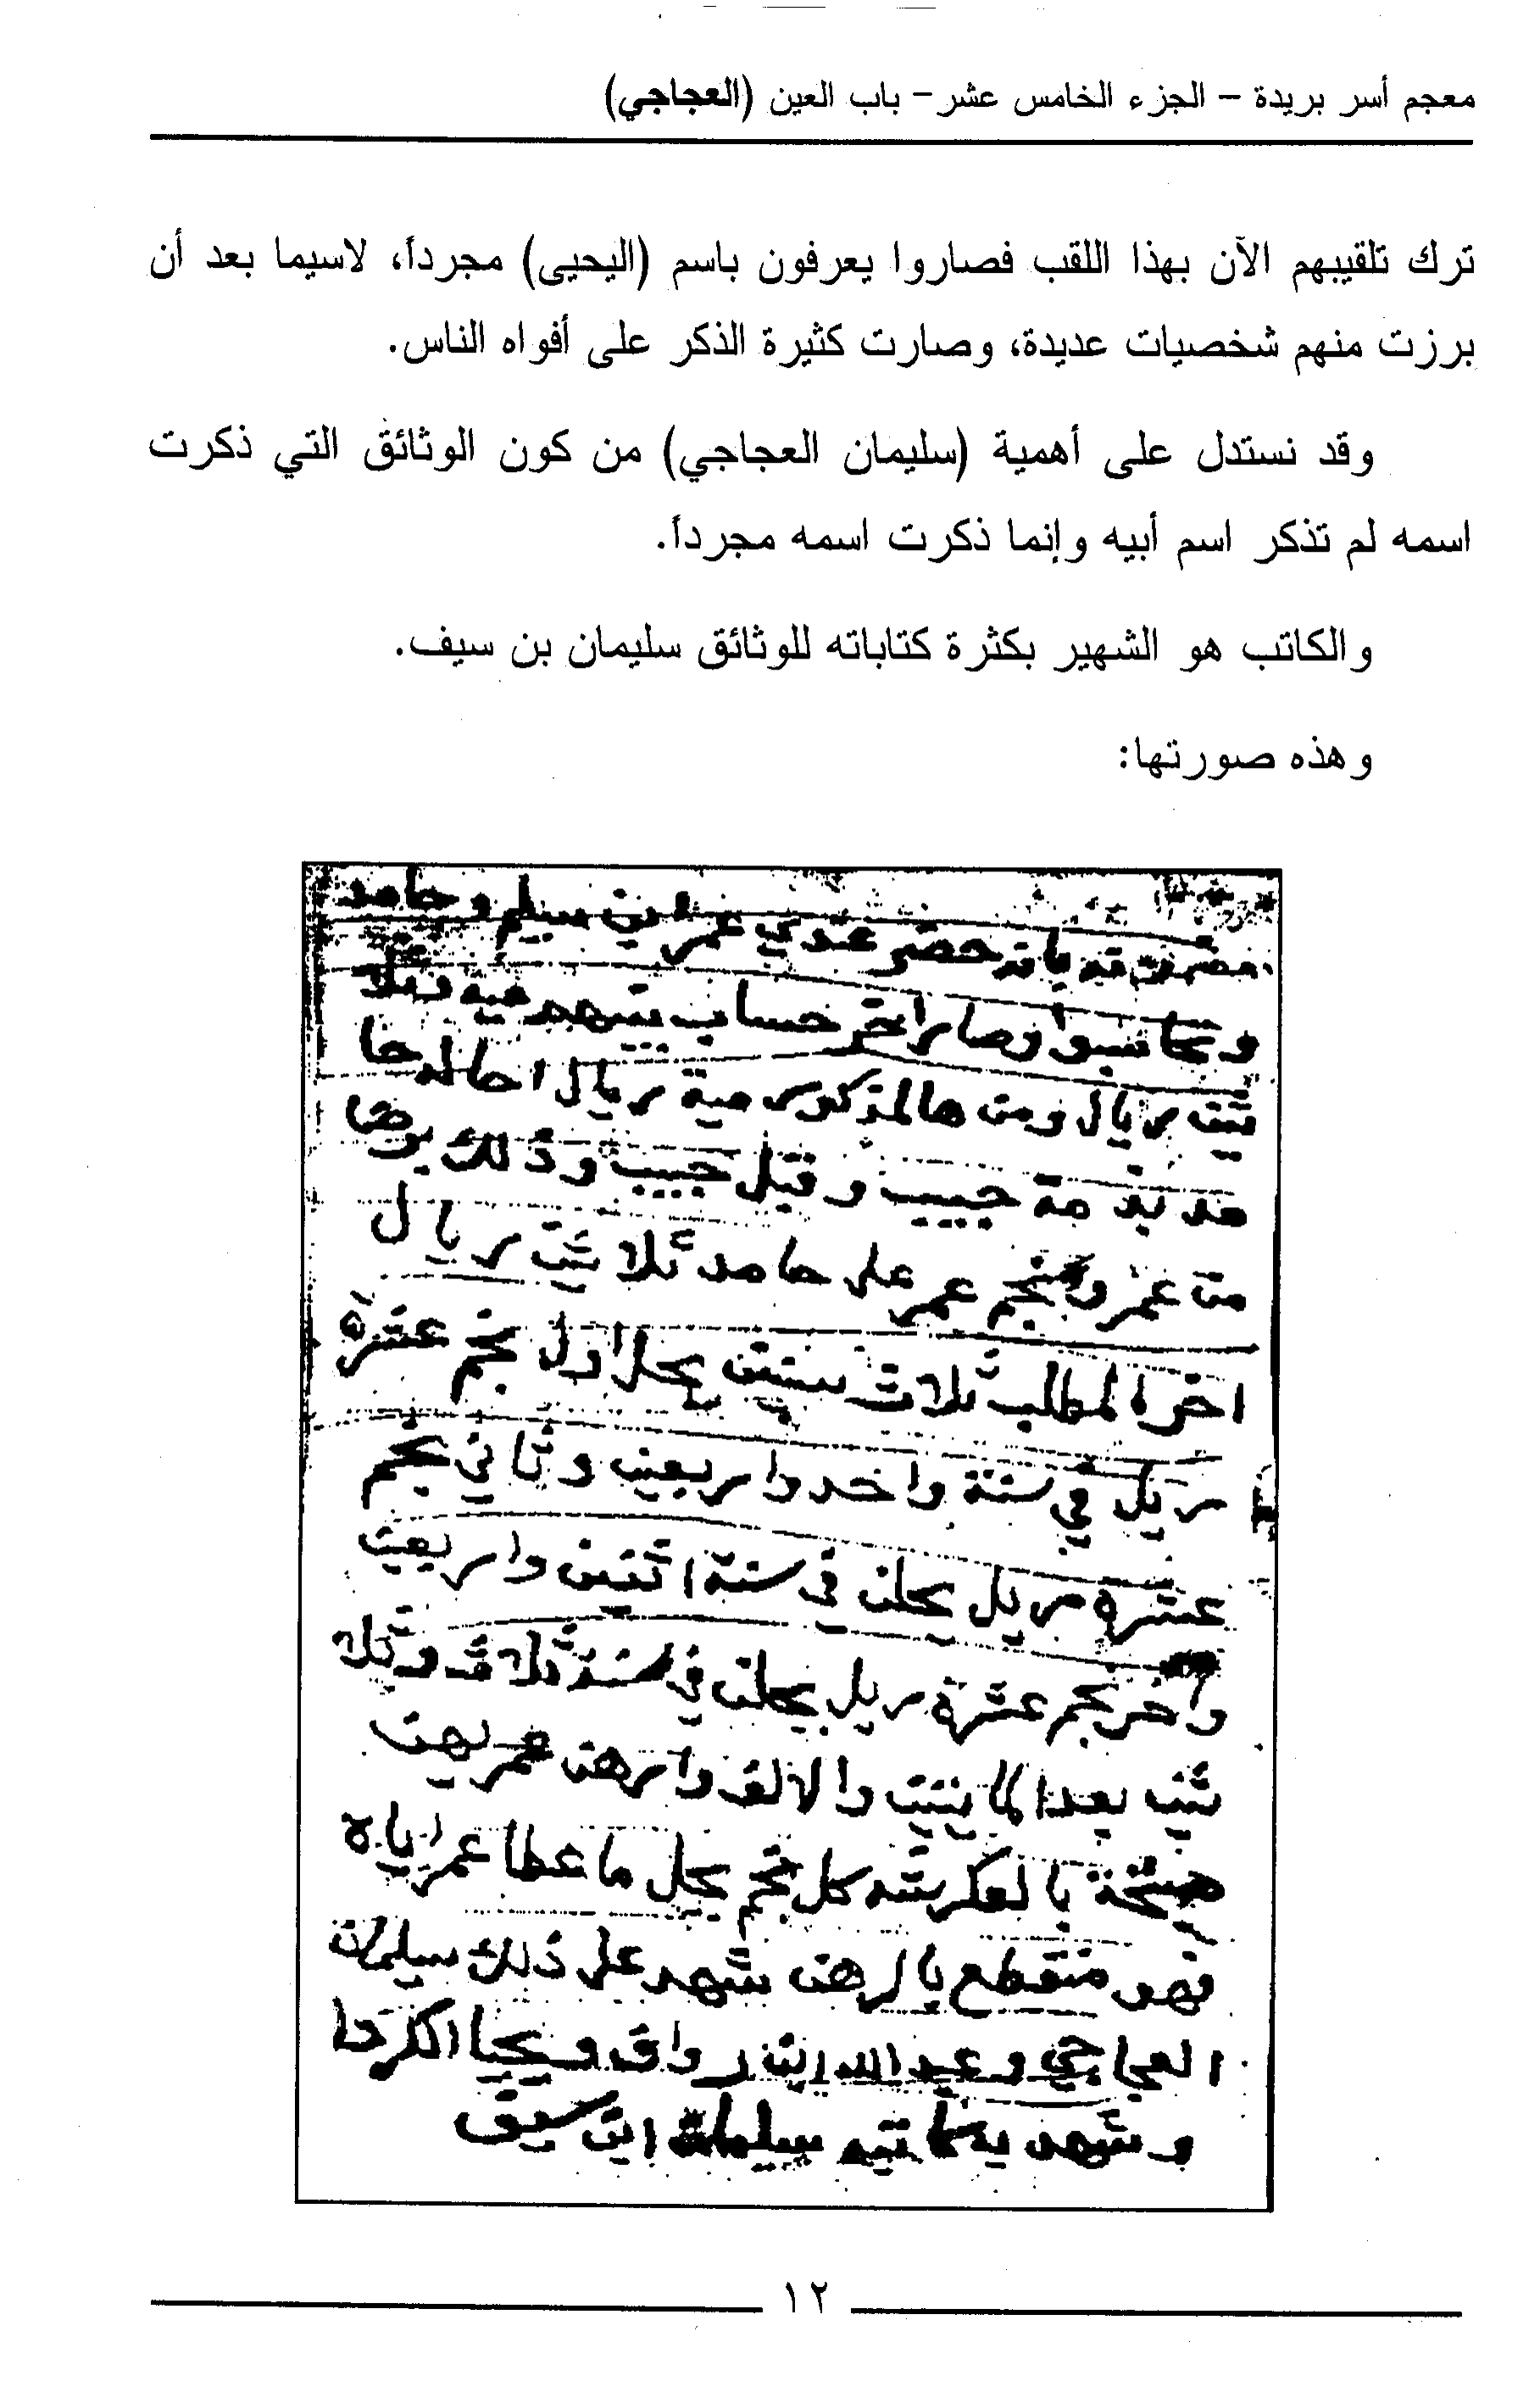 معجم أسر بريدة – الجزء الخامس عشر – باب العين (العجاجي)
ترك تلقيبهم الآن بهذا اللقب فصاروا يعرفون باسم (اليحيى) مجرداً، لاسيما بعد أن
برزت منهم شخصيات عديدة، وصارت كثيرة الذكر على أفواه الناس.
وقد نستدل على أهمية (سليمان العجاجي) من كون الوثائق التي ذكرت
اسمه لم تذكر اسم أبيه وإنما ذكرت اسمه مجرداً.
والكاتب هو الشهير بكثرة كتاباته للوثائق سليمان بن سيف.
وهذه صورتها:
بانه حضر عندي عمر ابن سليم وحامد
وتحاسبوا وصار اخر حساب بينهم مية وثلا
ثين ريال ومن هالمذكور مية ريال احاله حا
مد بذمة حبيب وقبل حبيب وذلك برضا
من عمر ونجم عمر على حامد ثلاثين ريال
اخر المطلب ثلاث سنين يحل اول نجم عشرة
ريل في سنة واحد واربعين وثاني نجم
عشرة ريل يحلن في سنة اثنين واربعين
واخر نجم عشرة ريل يحلن في سنة ثلاث وثلا
ثين بعد المايتين والالف وارهن عمر بهن
بالعكرشه كل نجم يحل ما عطا عمر اياه
فهو منقطع بالرهن شهد على ذلك سليمان
العجاجي وعبد الله ابن رواف ويحيا الكردا
وشهد به كاتبه سليمان ابن سيف
١٢